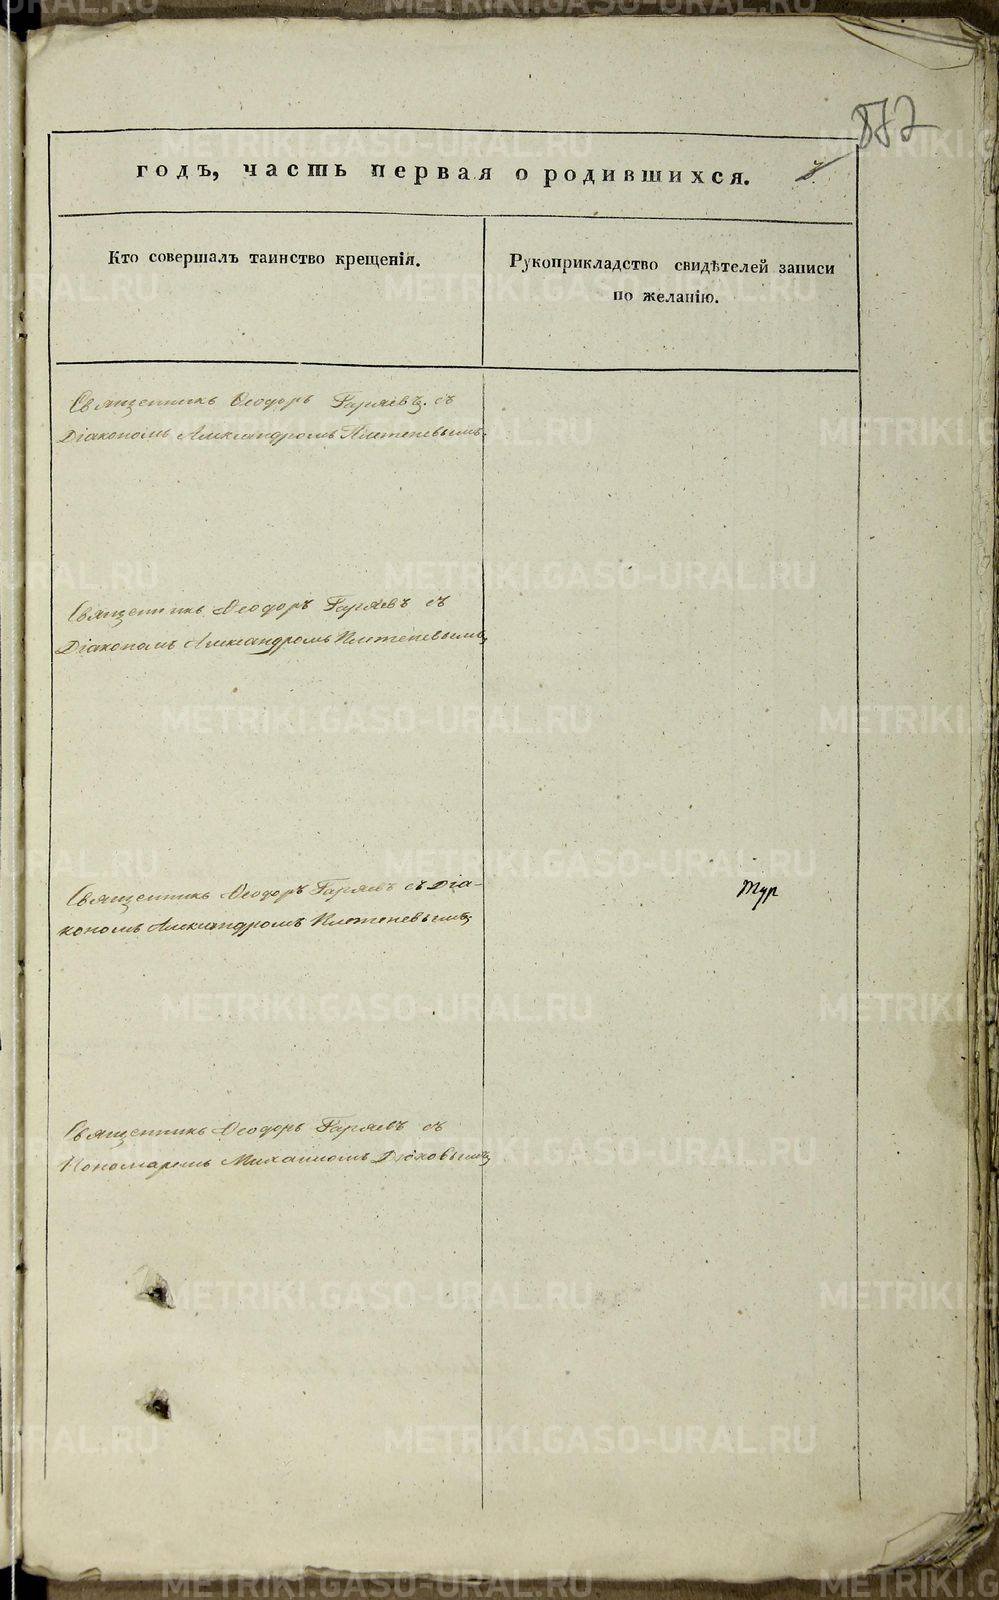 872
годъ, часть первая о родившихся.
Кто совершалъ таинство крещенія.
Рукоприкладство свидѣтелей записи
по желанію.
Священникъ Ѳеодоръ Гаряевъ съ
Діакономъ Александромъ Плетеневымъ.
Священникъ Ѳеодоръ Гаряевъ съ
Діакономъ Александромъ Плетеневымъ
Священникъ Ѳеодоръ Гаряевъ съ Діа-
кономъ Александромъ Плетеневымъ
Тур
Священникъ Ѳеодоръ Гаряевъ съ
Пономаремъ Михаиломъ Дюковымъ
METRIKI.GASO-URAL.RU